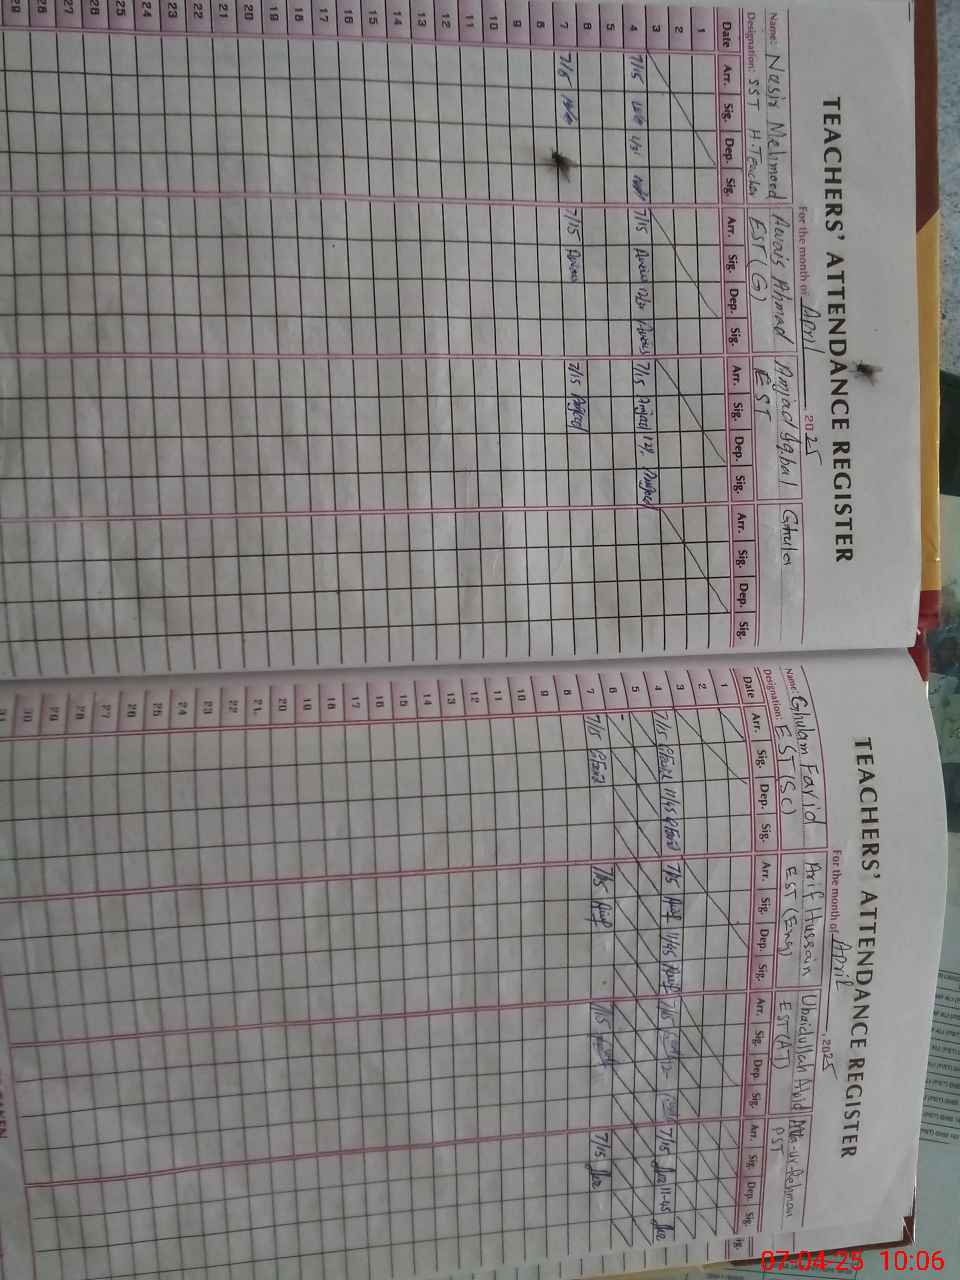 TEACHERS' ATTENDANCE REGISTER
For the month of April, 2025
Name: Nasir Mehmood Awais Ahmad Amjad Iqbal Ghula
Designation: SST H.Teacher EST(G) EST
Date Arr. Sig. Dep. Sig. Arr. Sig. Dep. Sig. Arr. Sig. Dep. Sig. Arr. Sig. Dep. Sig.
1
2
3
4 7/15 7/15 Awais Awais 7/15 Amjad Amjad
5
6
7 7/15 Awais 7/15 Amjad
8
9
10
11
12
13
14
15
16
17
18
19
20
21
22
23
24
25
26
27
28
29
TEACHERS' ATTENDANCE REGISTER
For the month of April, 2025
Name: Ghulam Farid Arif Hussain Ubaidullah Abid Atta-ur-Rehman
Designation: EST(SC) EST(Eng) EST(AT) PST
Date Arr. Sig. Dep. Sig. Arr. Sig. Dep. Sig. Arr. Sig. Dep. Sig. Arr. Sig. Dep. Sig.
1
2
3
4 7/15 GFarid 11/45 GFarid 7/15 Arif 11/45 Arif 7/15 7/15 11-45
5
6
7 7/15 GFarid 7/15 Arif 7/15 7/15
8
9
10
11
12
13
14
15
16
17
18
19
20
21
22
23
24
25
26
27
28
29
30
31
07-04-25 10:06